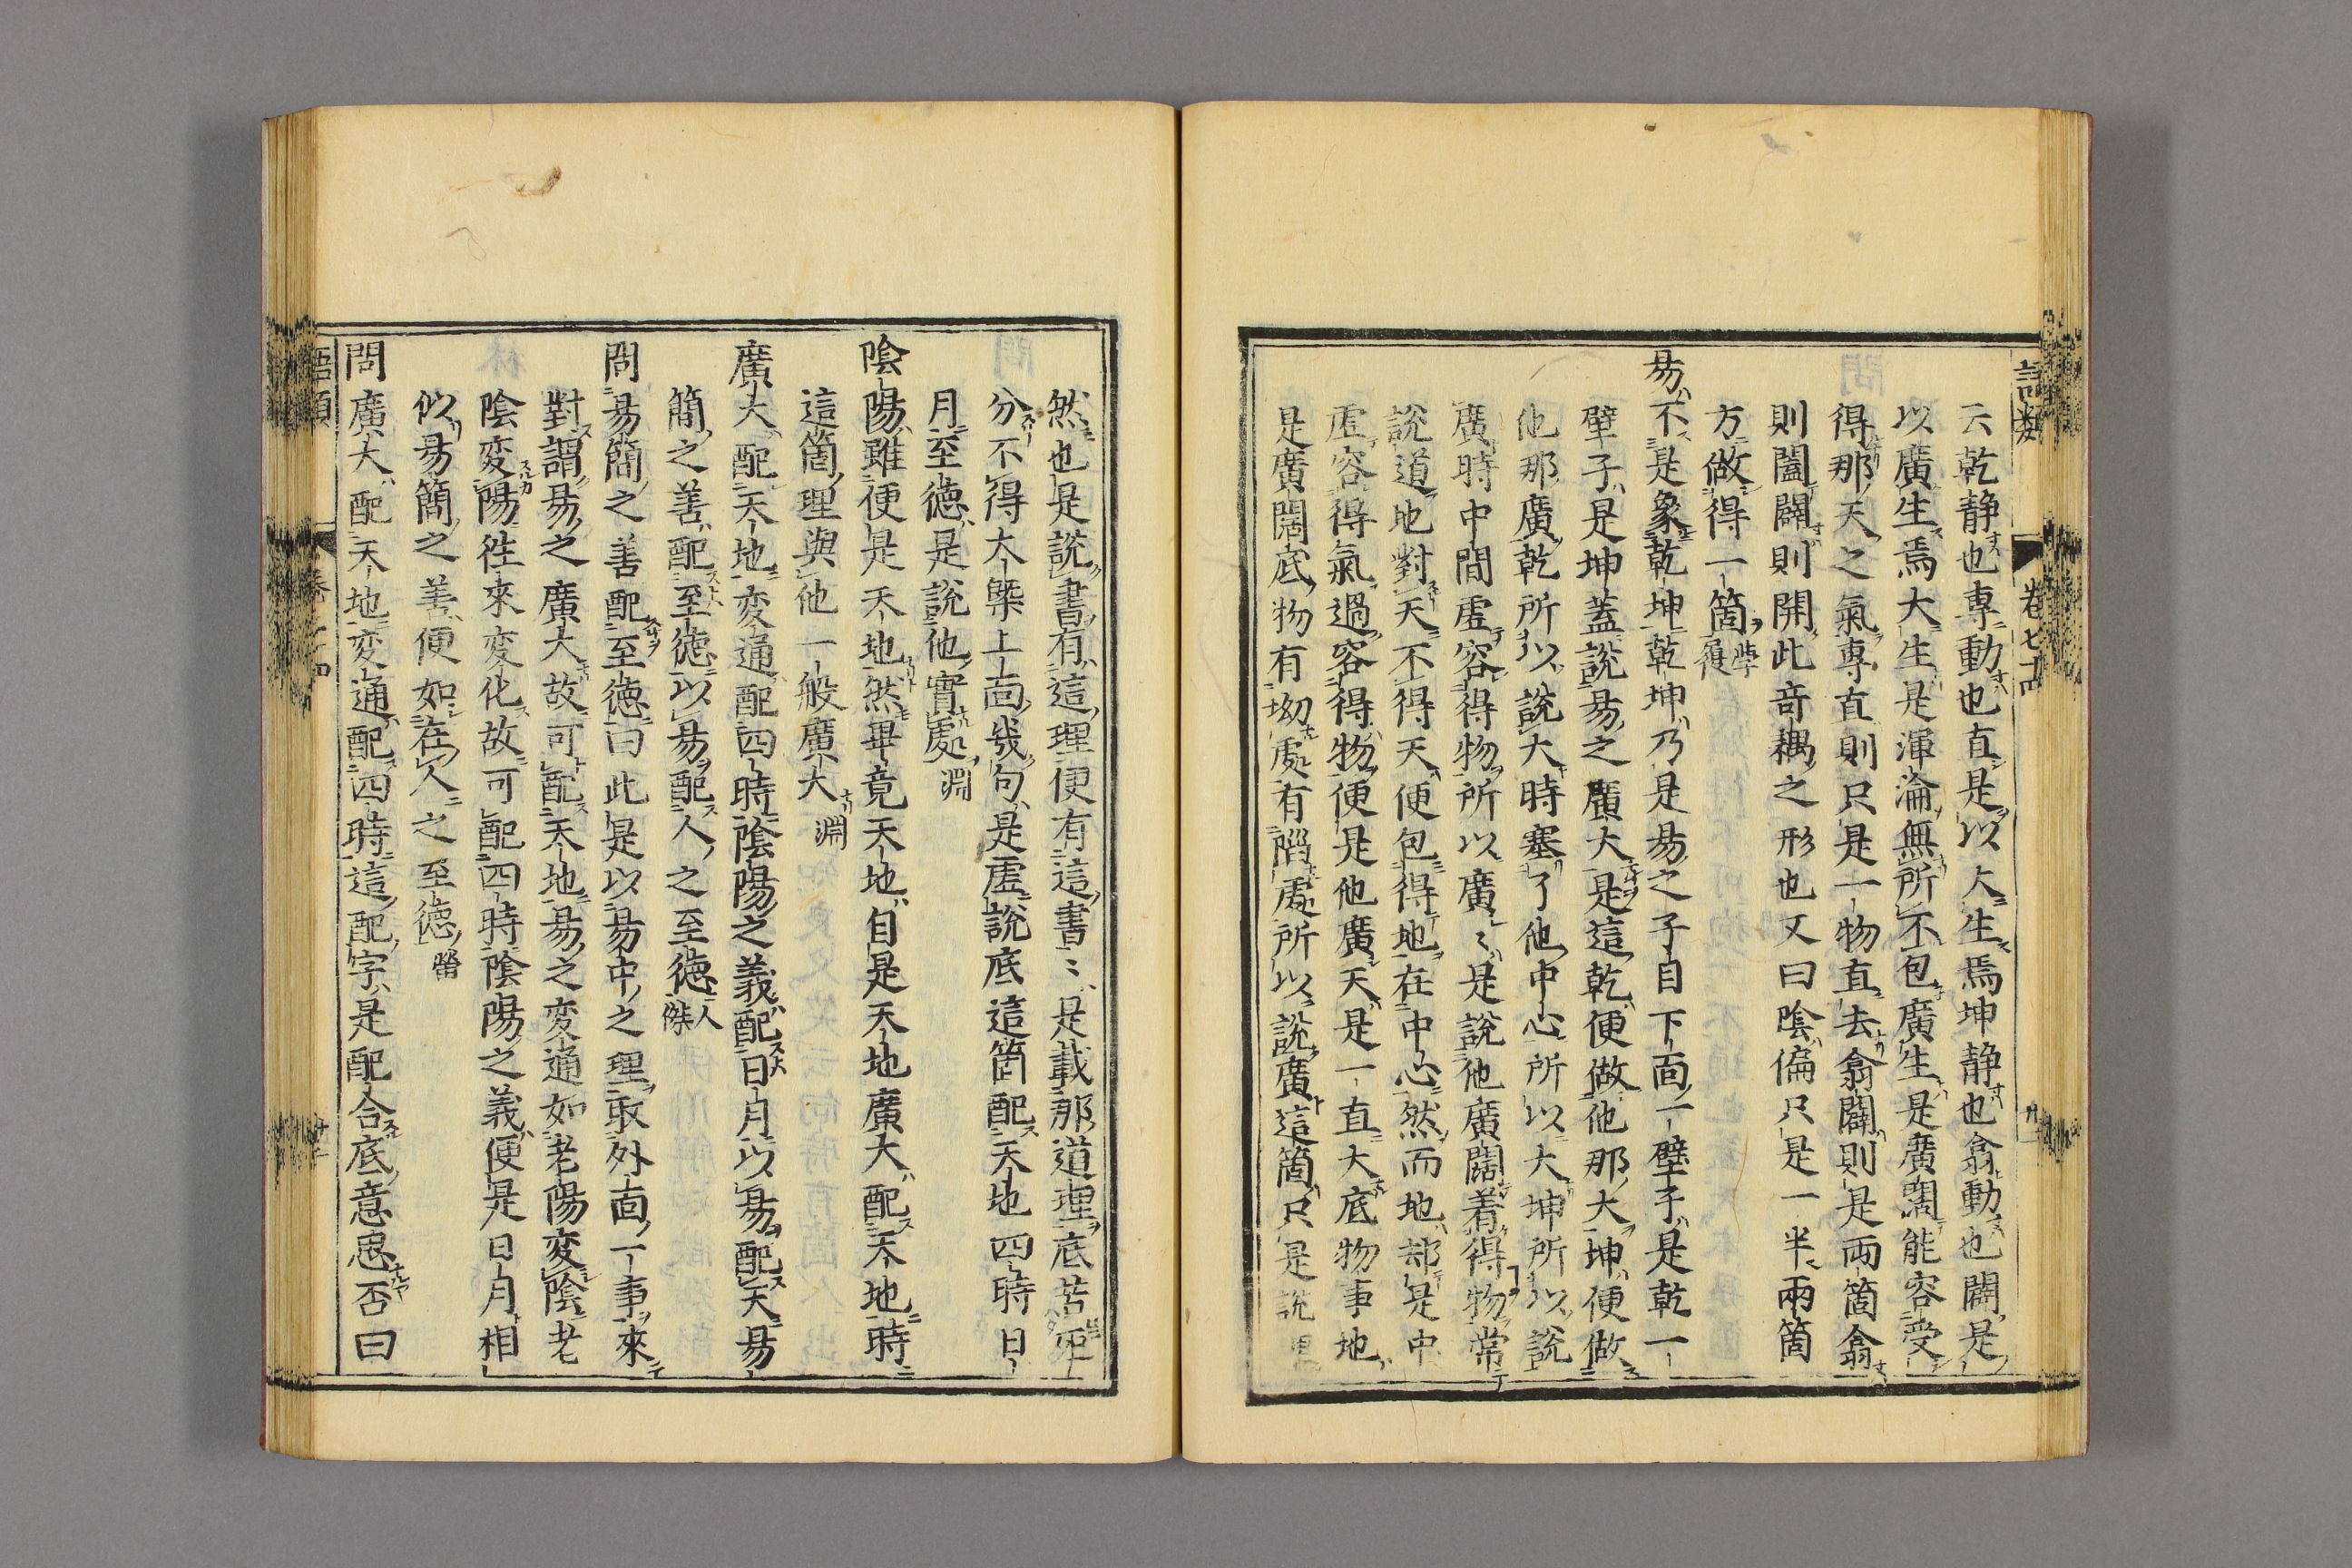 語類 卷七十四
云乾静也專動也直是以大生焉坤静也翕動也闢是
以廣生焉大生是渾淪無所不包廣生是廣闊能容受
得那天之氣專直則只是一物直去翕闢則是兩箇翕
則闔闢則開此竒耦之形也又曰陰偏只是一半兩箇
方做得一箇學履
易不是象乾坤乾坤乃是易之子目下面一壁子是乾一
壁子是坤蓋說易之廣大是這乾便做他那大坤便做
他那廣乾所以說大時塞了他中心所以大坤所以說
廣時中間虛容得物所以廣〻是說他廣闊着得物常
說道地對天不得天便包得地在中心然而地却是中
虛容得氣過容得物便是他廣天是一直大底物事地
是廣闊底物有坳處有陷處所以說廣這箇只是說
然也是說書有這理便有這書〻是載那道理底苦死
分不得大槩上面幾句是虛說底這箇配天地四時日
月至德是說他實處淵
陰陽雖便是天地然畢竟天地自是天地廣大配天地時
這箇理與他一般廣大淵
廣大配天地変通配四時陰陽之義配日月以易配天易
簡之善配至德以易配人之至德人傑
問易簡之善配至德曰此是以易中之理取外面一事來
對謂易之廣大故可配天地易之変通如老陽変陰老
陰変陽徃來変化故可配四時陰陽之義便是日月相
似易簡之善便如在人之至德㽦
問廣大配天地変通配四時這配字是配合底意思否曰
語類 卷七十四